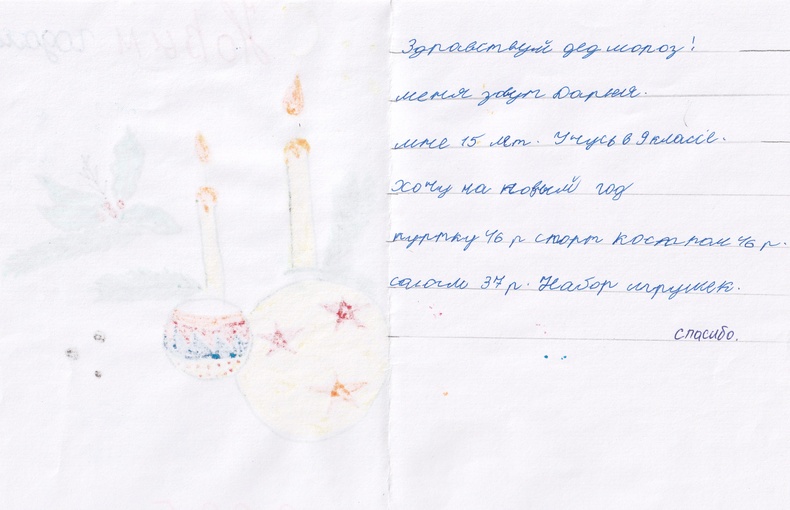 Новым годом
Здравствуй дед мороз!
меня зовут Дарья.
мне 15 лет. Учусь в 9 классе.
хочу на новый год
куртку 46 р спорт костюм 46 р.
сапоги 37 р. Набор игрушек.
спасибо.